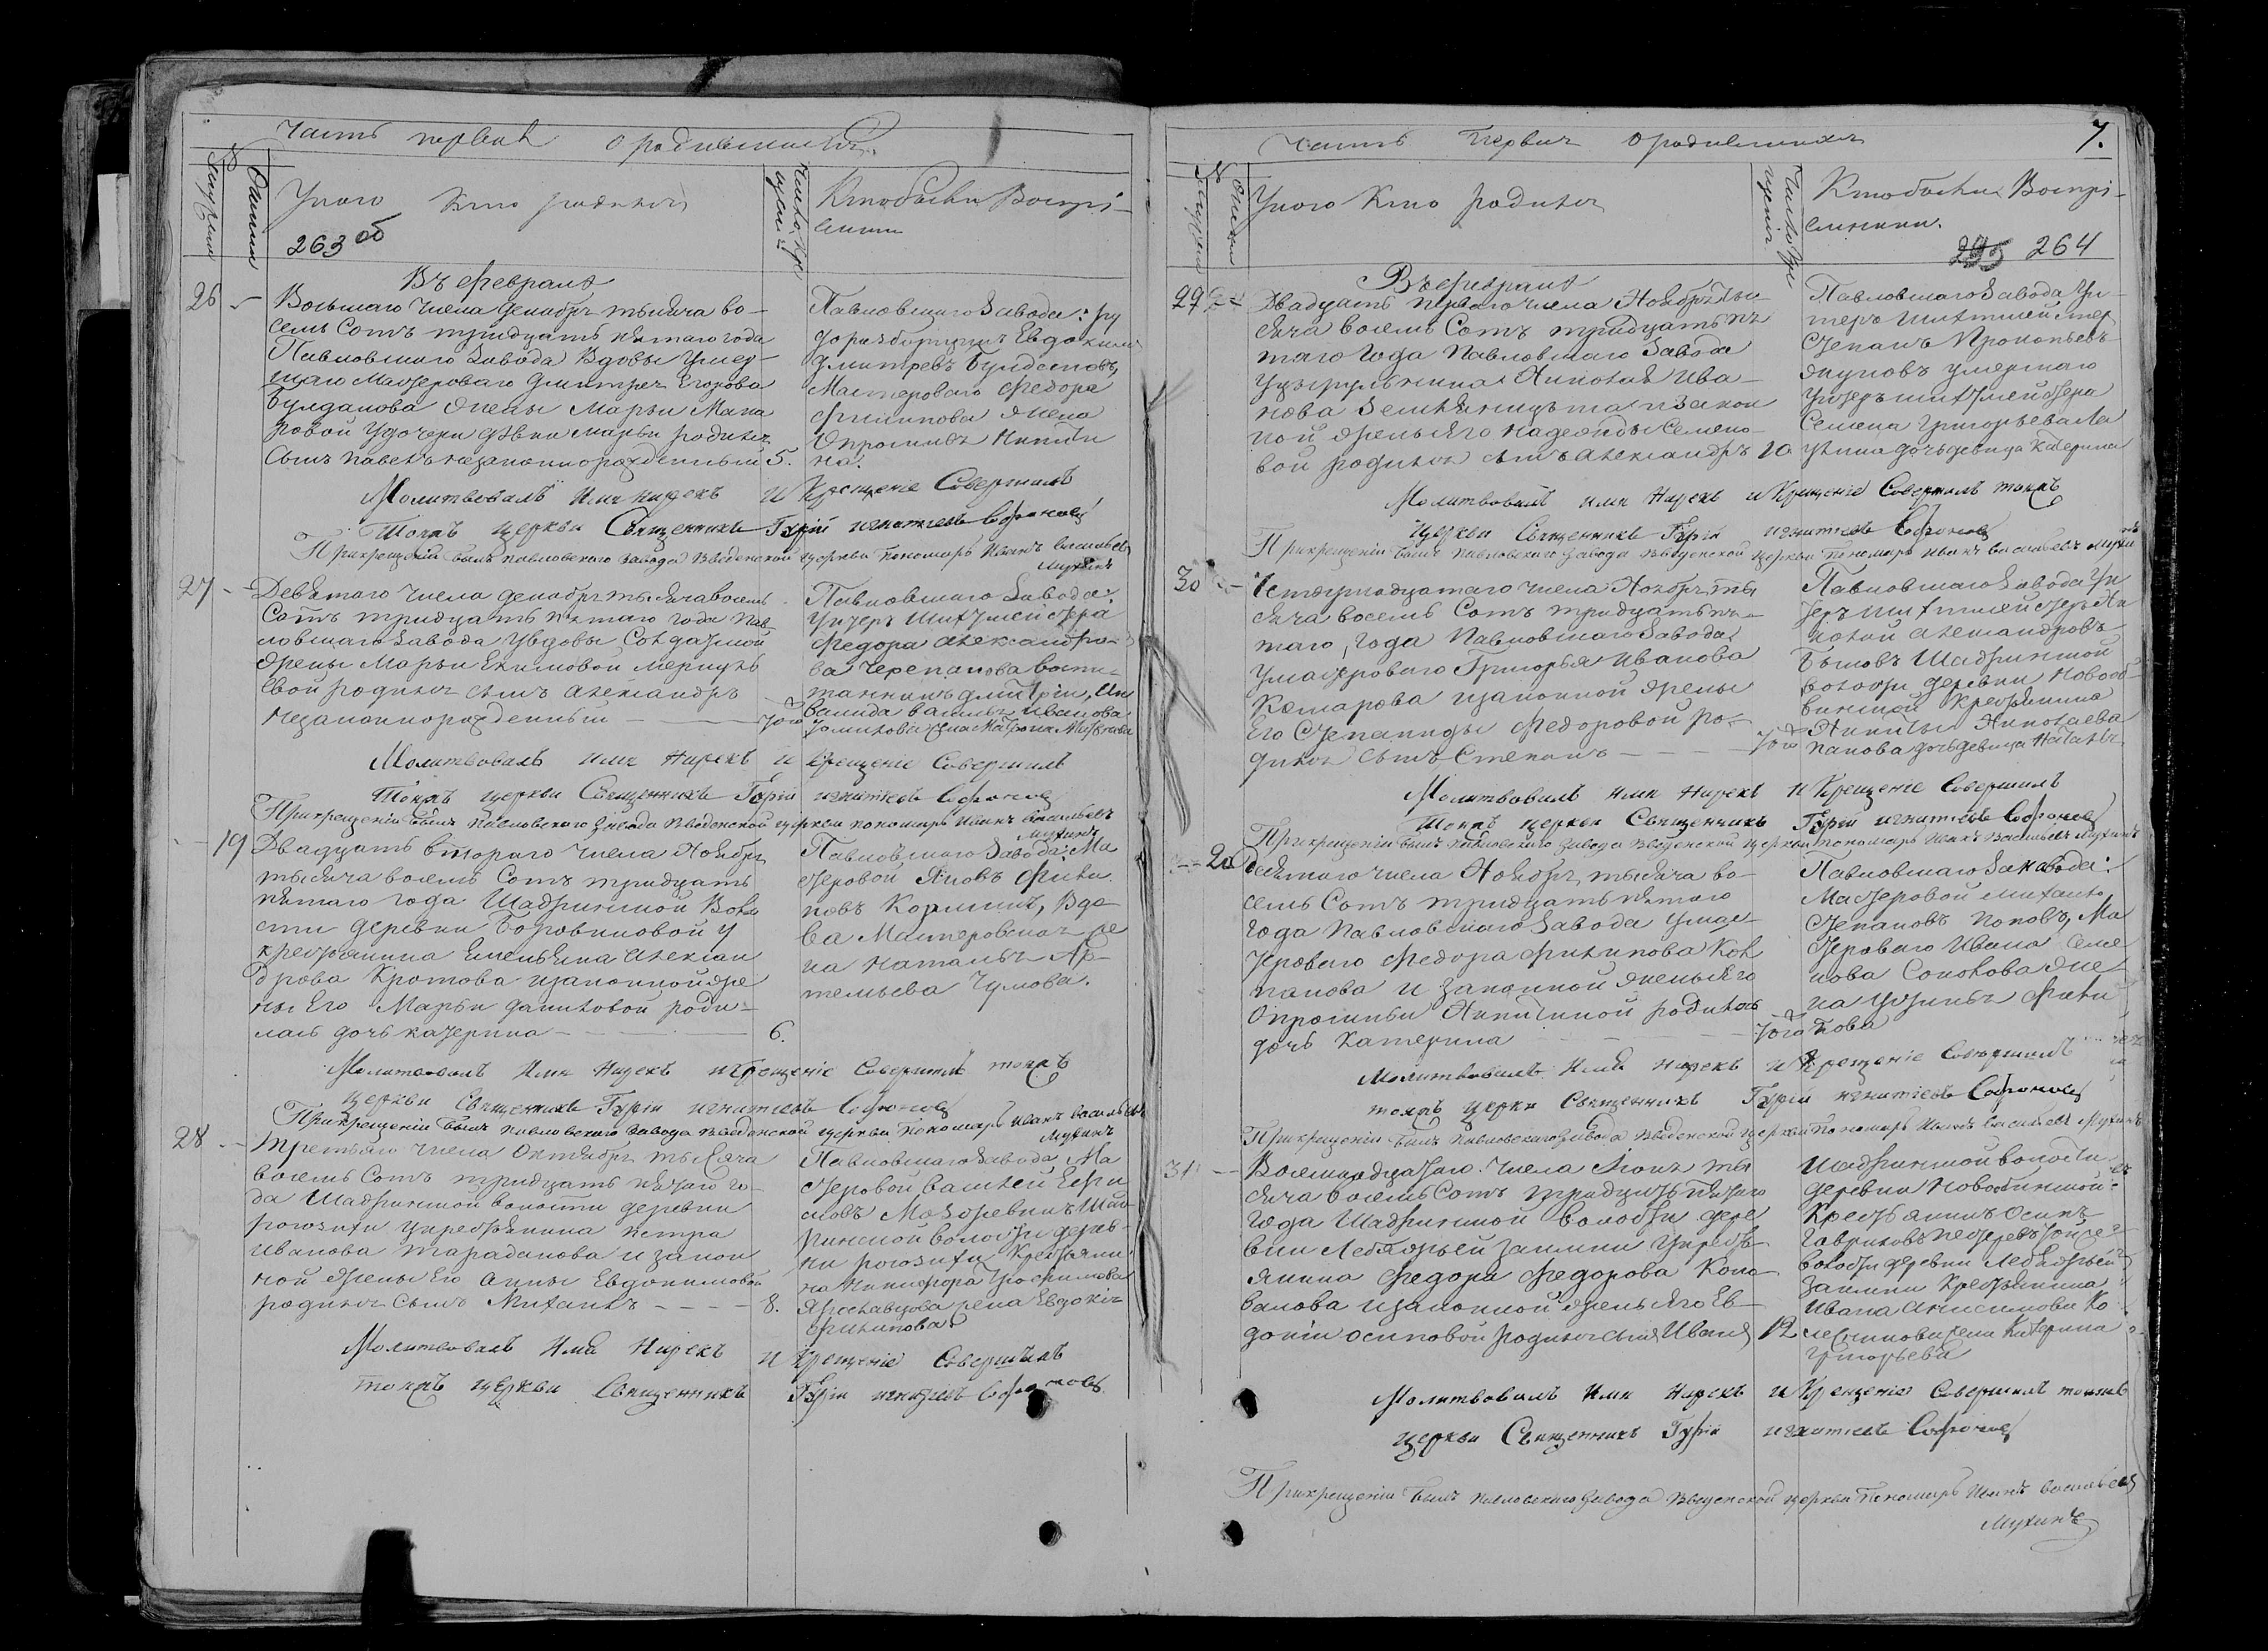 Часть первая о родившихся
№
мужеска
женска
У кого кто родился
Число крещения
Кто были Воспрi-
емники
263 об
Въ февралѣ
26 Восьмаго числа декабря тысяча во-
семь Сотъ тридцать пятаго года
Павловскаго Завода Вдовы умер-
шаго Мастероваго Дмитрея Егорова
Булдакова жены Марьи Мака
ровой у дочери дѣвки марьи родился
сынъ павелъ незаконнорожденный 5.
Павловскаго Завода: ру
доразборщикъ Евдокимъ
дмитревъ Булдаковъ,
Мастероваго Федора
Филипова жена
Опросинья Никити
на.
Молитвовалъ Имя нарекъ и Крещенiе Совершилъ
Тояжъ церкви Священникъ Гурiй игнатiевъ Софоновъ
При крещенiи былъ павловского завода Введенской церкви пономарь Иванъ васильевъ
Мухинъ
27 Девятаго числа декабря тысяча восемь
Сотъ тридцать пятаго года Пав
ловскаго завода у вдовы Солдатской
жены Марьи Екимовой
родился сынъ александръ
незаконнорожденный 7го
Павловскаго Завода:
Унтеръ Шихтмейстера
Федора александро-
ва Черепанова воспи-
танникъ дмитрiи, ин
валида василья иванова
жена Матрона
Молитвовалъ имя Нарекъ и Крещенiе Совершилъ
Тояжъ церкви Священникъ Гурiи игнатiевъ Софоновъ
При крещенiи былъ павловского завода Введенской церкви пономарь Иванъ васильевъ
Мухинъ
19 Двадцать втораго числа Ноября
тысяча восемь Сотъ тридцать
пятаго года Шадринской Воло
сти деревни Боровиковой у
крестьянина Емельяна алексан
дрова Кротова и законной же
ны Его Марьи даниловой роди-
лась дочь катерина 6.
Павловскаго Завода: Ма
стеровой Яковъ Фили
повъ Вдо
ва Мастеровская же
на Наталья Ар-
темьева Чумова.
Молитвовалъ Имя Нарекъ и Крещенiе Совершилъ тояжъ
церкви Священникъ Гурiи игнатiевъ Софоновъ
При крещенiи былъ павловского завода Введенской церкви пономарь Иванъ васильевъ
Мухинъ
28 Третьяго числа Октября тысяча
восемь Сотъ тридцать пятаго го-
да Шадринской волости деревни
рогозихи у крестьянина петра
Иванова тараданова и закон
ной жены Его анны Евдокимовой
родился сынъ Михаилъ 8.
Павловскаго Завода Ма
стеровой василей
Шад
ринской волости дерев-
ни рогозихи Крестьяни
на Никифора трофимова
Ярославцова жена Евдокiя
филипова
Молитвовалъ Имя Нарекъ и Крещенiе Совершилъ
тояжъ церкви Священникъ Гурiи игнатiевъ Софоновъ
Часть Первая о родившихся 7.
№
У кого Кто родился
Число крещенiя
Кто были Воспрi-
емники.
264
Въ февралѣ
29 Двадцать перваго числа Ноября ты-
сяча восемь Сотъ тридцать пя
таго года Павловскаго Завода
Николая Ива-
нова и закон
ной жены его надежды Семено-
вой родился сынъ александръ 10
Павловскаго Завода Ун-
теръ Шихтмейстер
Степанъ Прокопьевъ
умершаго
Унтеръ шихтмейстера
Семена Григорьева
дочь девица Катерина
Молитвовалъ имя Нарекъ и Крещенiе Совершилъ тояжъ
Церкви Священникъ Гурiи игнатiевъ Софоновъ
При крещенiи былъ павловского завода Введенской церкви пономарь иванъ васильевъ Мухинъ
30 Четырнадцатаго числа Ноября ты
сяча восемь Сотъ тридцать пя-
таго года Павловскаго Завода
у мастероваго Григорья Иванова
Комарова и законной жены
Его Степаниды Федоровой ро-
дился сынъ Степанъ 7го
Павловскаго Завода Ун
теръ Шихтмейстеръ Ни
колай александровъ
Быковъ Шадринской
волости деревни Новооб-
винской крестьянина
Никиты Николаева
Панова дочь девица Наталья
Молитвовалъ имя Нарекъ и Крещенiе Совершилъ
Тояжъ церкви Священникъ Гурiи игнатiевъ Софоновъ
При крещенiи былъ павловского завода Введенской церкви пономарь Иванъ Васильевъ Мухинъ
20 Десятаго числа Ноября тысяча во-
семь Сотъ тридцать пятаго
года Павловскаго Завода у мас-
тероваго Федора Филипова Кол
пакова и законной жены Его
Опросиньи Никитиной родилась
дочь Катерина 7го
Павловскаго Завода:
Мастеровой михайло
Степановъ Поповъ, Мас
тероваго Ивана Семе
нова Соколова же
на Устинья Фили
пова
Молитвовалъ Имя Нарекъ и Крещенiе Совершилъ
тояжъ церкви Священникъ Гурiи игнатiевъ Софоновъ
При крещенiи былъ павловского завода Введенской церкви пономарь Иванъ васильевъ Мухинъ
31 Восемнадцатаго числа ты
сяча восемь Сотъ тридцать пятаго
года Шадринской волости дере
вни Лебяжьей заимки у кресть-
янина федора федорова Коно-
валова и законной жены Его Ев-
докiи осиповой родился сынъ Иванъ 12
Шадринской волости
деревни Новообинской:
Крестьянинъ Осипъ
Гавриловъ
волости деревни Лебяжьей
заимки крестьянина
Ивана анисимова Ко
жена Катерина
григорьева
Молитвовалъ Имя Нарекъ и Крещенiе Совершилъ тояжъ
церкви Священникъ Гурiи игнатiевъ Софоновъ
При крещенiи былъ павловского завода Введенской церкви пономарь Иванъ васильевъ
Мухинъ